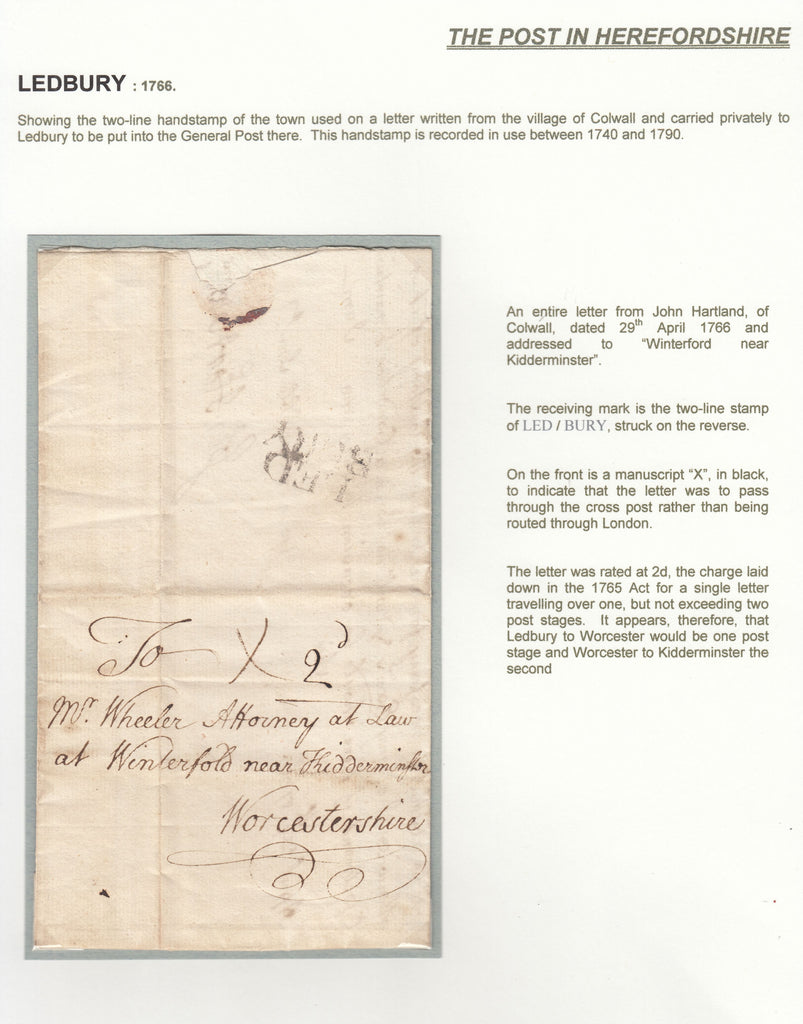 THE POST IN HEREFORDSHIRE
LEDBURY : 1766.
Showing the two-line handstamp of the town used on a letter written from the village of Colwall and carried privately to
Ledbury to be put into the General Post there. This handstamp is recorded in use between 1740 and 1790.
An entire letter from John Hartland, of
Colwall, dated 29th April 1766 and
addressed to “Winterford near
Kidderminster”.
The receiving mark is the two-line stamp
of LED / BURY, struck on the reverse.
On the front is a manuscript “X”, in black,
to indicate that the letter was to pass
through the cross post rather than being
routed through London.
The letter was rated at 2d, the charge laid
down in the 1765 Act for a single letter
travelling over one, but not exceeding two
post stages. It appears, therefore, that
Ledbury to Worcester would be one post
stage and Worcester to Kidderminster the
second
LED
BURY
To X 2d
Mr. Wheeler Attorney at Law
at Winterfold near Kidderminster
Worcestershire